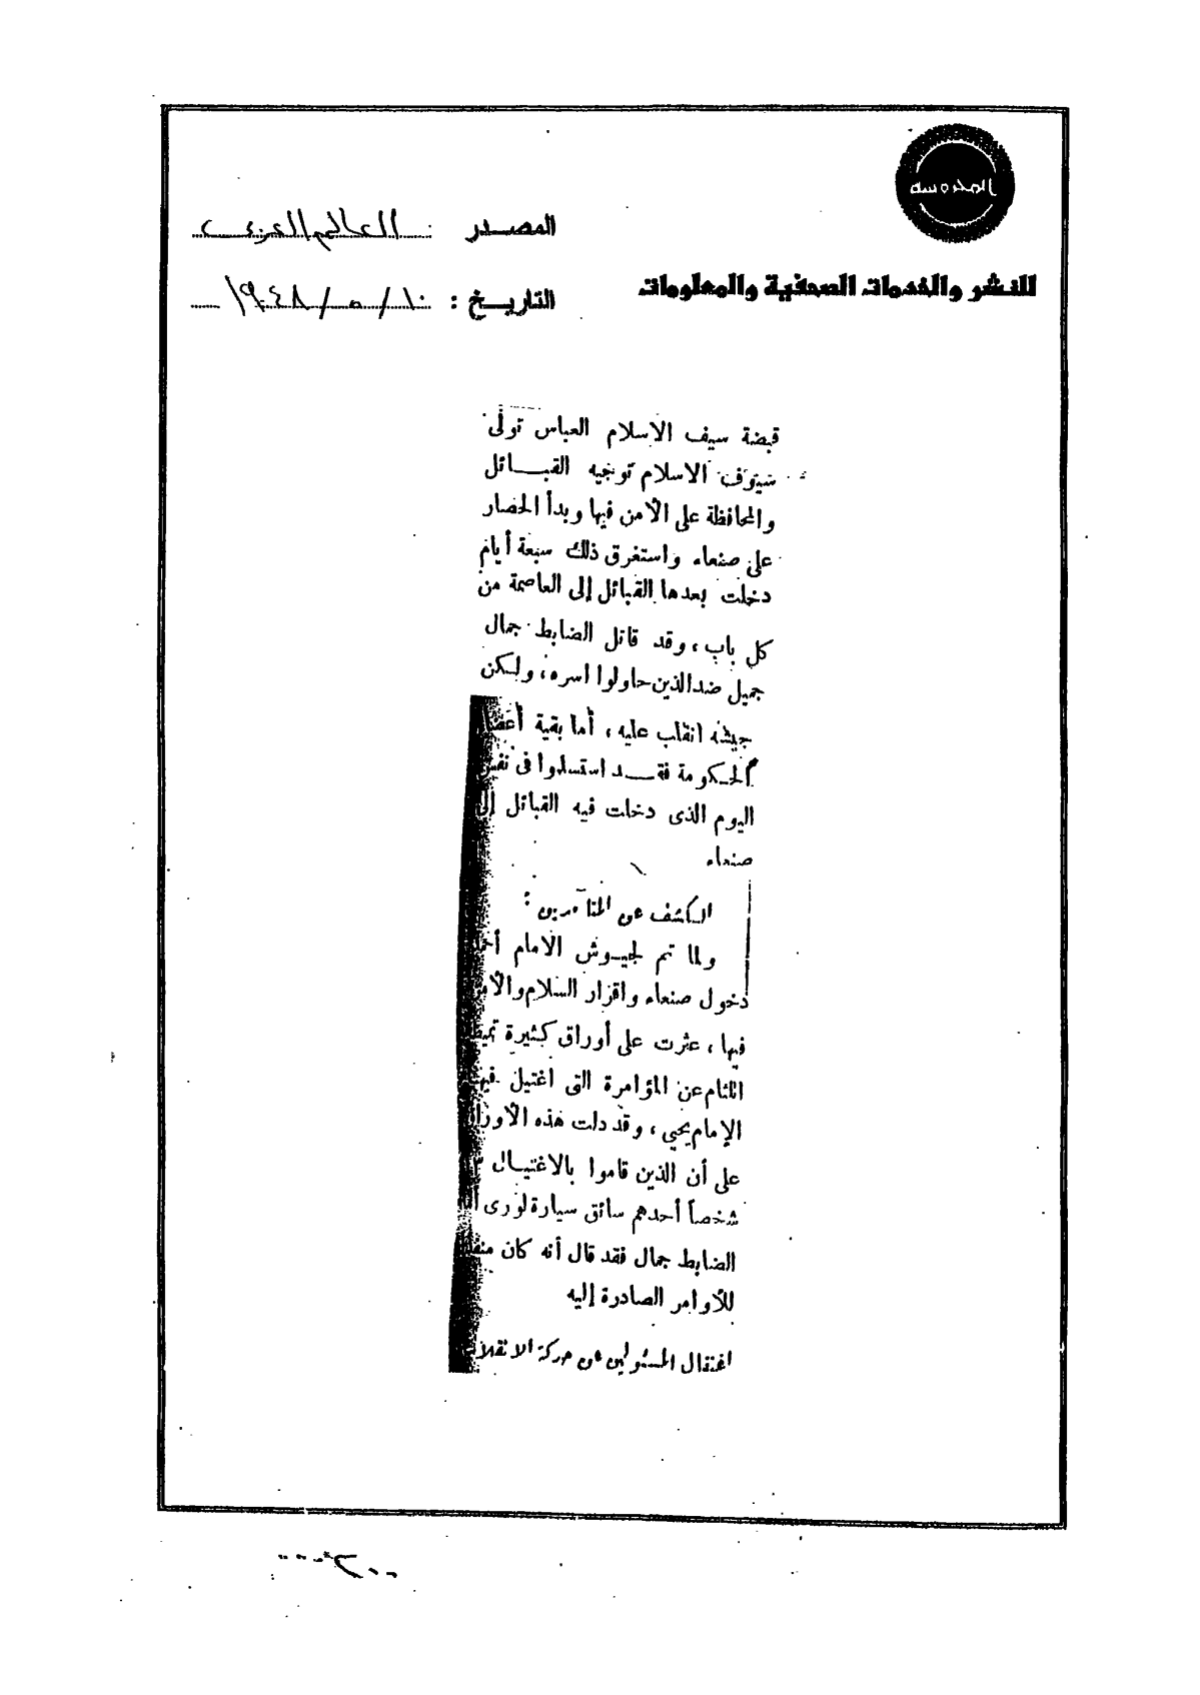 المحروسة
المصدر : العالم العربى
للنشر والخدمات الصحفية والمعلومات
التاريخ : ١٠ / ٥ / ١٩٤٨
قبضة سيف الاسلام العباس تولى
سيوف الاسلام توجيه القبائل
والمحافظة على الأمن فيها وبدأ الحصار
على صنعاء واستغرق ذلك سبعة أيام
دخلت بعدها القبائل إلى العاصمة من
كل باب، وقد قاتل الضابط جمال
جميل ضد الذين حاولوا أسره، ولكن
جيشه انقلب عليه، أما بقية أعضا
الحكومة فقد استسلموا فى نفس
اليوم الذى دخلت فيه القبائل إلى
صنعاء
الكشف عن المتآمرين :
ولما تم لجيوش الامام أحمد
دخول صنعاء واقرار السلام والأمن
فيها، عثرت على أوراق كثيرة تميط
اللثام عن المؤامرة التى اغتيل فيها
الإمام يحيى، وقد دلت هذه الأوراق
على أن الذين قاموا بالاغتيال
شخصاً أحدهم سائق سيارة لورى أما
الضابط جمال فقد قال أنه كان منفذ
للأوامر الصادرة إليه
اعتقال المسئولين عن حركة الانقلاب